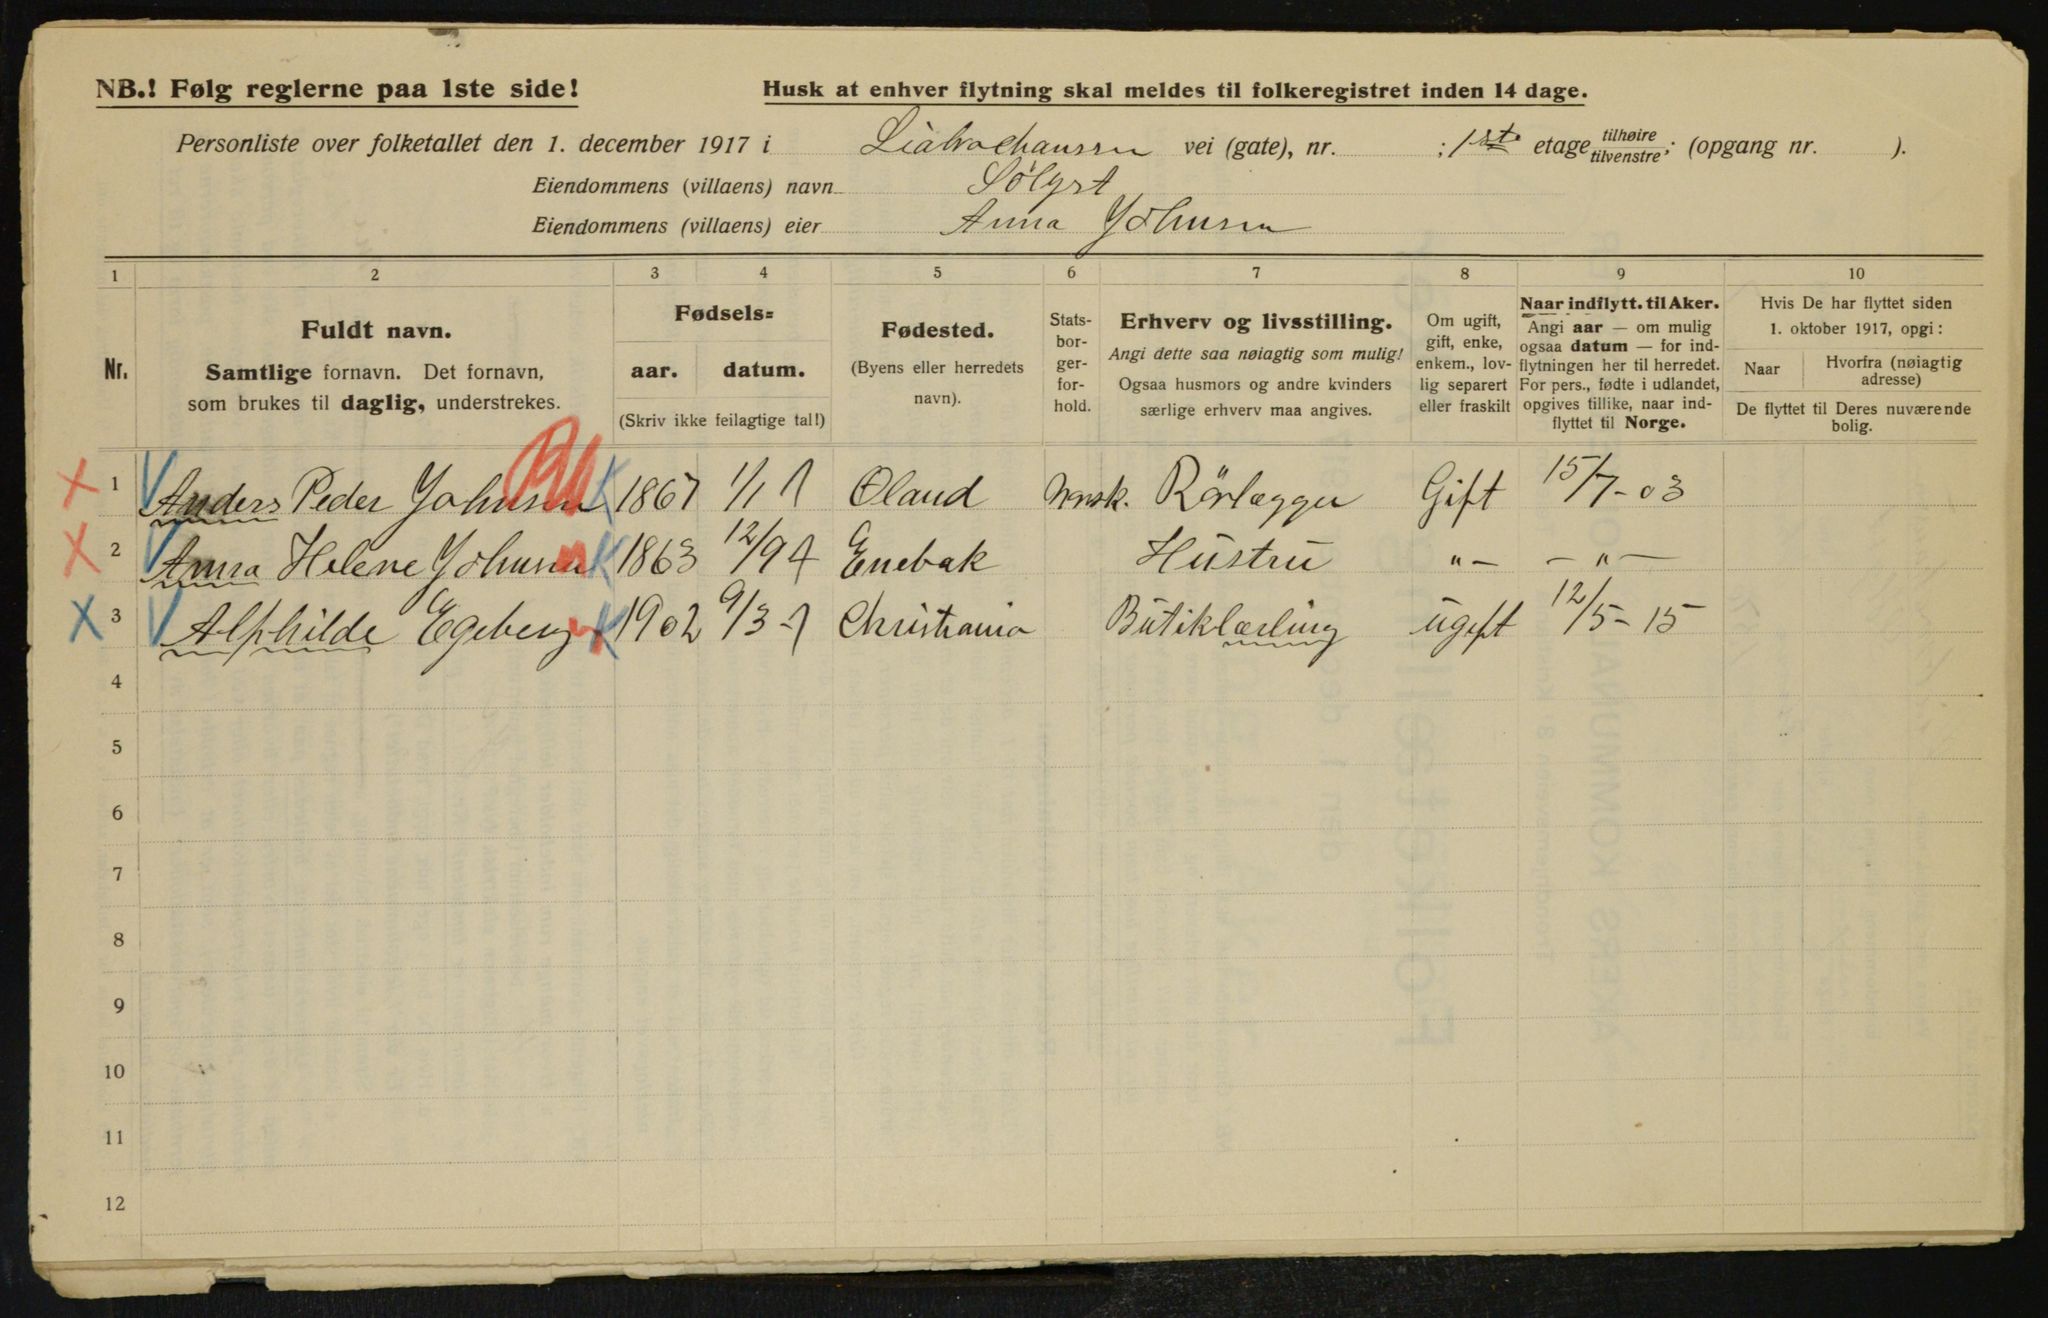 NB.! Følg reglerne paa 1ste side!
Husk at enhver flytning skal meldes til folkeregistret inden 14 dage.
Personliste over folketallet den 1. december 1917 i Liabrochaussen vei (gate), nr. ; 1ste etage tilhøire tilvenstre; (opgang nr. ).
Eiendommens (villaens) navn Sölyst
Eiendommens (villaens) eier Anna Johnsen
1 2 3 4 5 6 7 8 9 10
Nr.
Fuldt navn.
Samtlige fornavn. Det fornavn,
som brukes til daglig, understrekes.
Fødsels=
aar. datum.
(Skriv ikke feilagtige tal!)
Fødested.
(Byens eller herredets
navn).
Stats-
bor-
ger-
for-
hold.
Erhverv og livsstilling.
Angi dette saa nøiagtig som mulig!
Ogsaa husmors og andre kvinders
særlige erhverv maa angives.
Om ugift,
gift, enke,
enkem., lov-
lig separert
eller fraskilt
Naar indflytt. til Aker.
Angi aar — om mulig
ogsaa datum — for ind-
flytningen her til herredet.
For pers., fødte i udlandet,
opgives tillike, naar ind-
flyttet til Norge.
Hvis De har flyttet siden
1. oktober 1917, opgi:
Naar
Hvorfra (nøiagtig
adresse)
De flyttet til Deres nuværende
bolig.
1 Anders Peder Johnsen 1867 1/1 Øland Norsk. Rörlægger Gift 15/7-03
2 Anna Helene Johnsen 1863 12/9 Enebak Hustru "- - " -
3 Alphilde Egeberg 1902 9/3 Christiania Butiklærling ugift 12/5-15
4
5
6
7
8
9
10
11
12